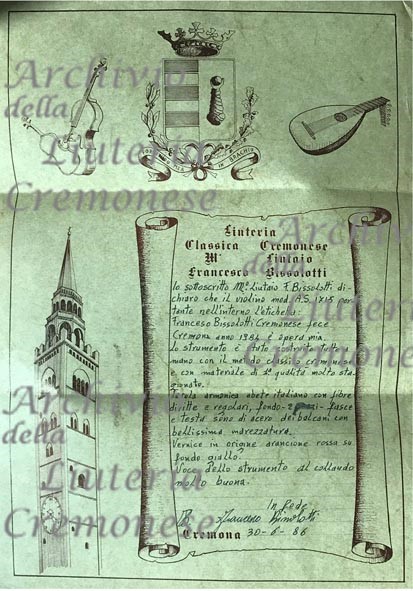 Archivio
della
Liuteria
Cremonese
FORTITUDO MEA IN BRACHIO
Liuteria
Classica Cremonese
Mº Liutaio
Francesco Bissolotti
Io sottoscritto Mº Liutaio F. Bissolotti di-
chiaro che il violino mod. A.S. 1715 por
tante nell'interno l'etichetta:
Francesco Bissolotti Cremonese fece
Cremona anno 1984 è opera mia
lo strumento è stato costruito tutto a
mano con il metodo classico cremonese
e con materiale di 1ª qualità molto sta-
gionato.
Tavola armonica abete italiano con fibre
diritte e regolari, fondo 2 pezzi - fasce
e testa sono di acero dei balcani con
bellissima marezzatura.
Vernice in origine arancione rossa su
fondo giallo.
Voce dello strumento al collaudo
molto buona.
In fede
Francesco Bissolotti
Cremona 30-6-86
Archivio
della
Liuteria
Cremonese
Archivio
della
Liuteria
Cremonese